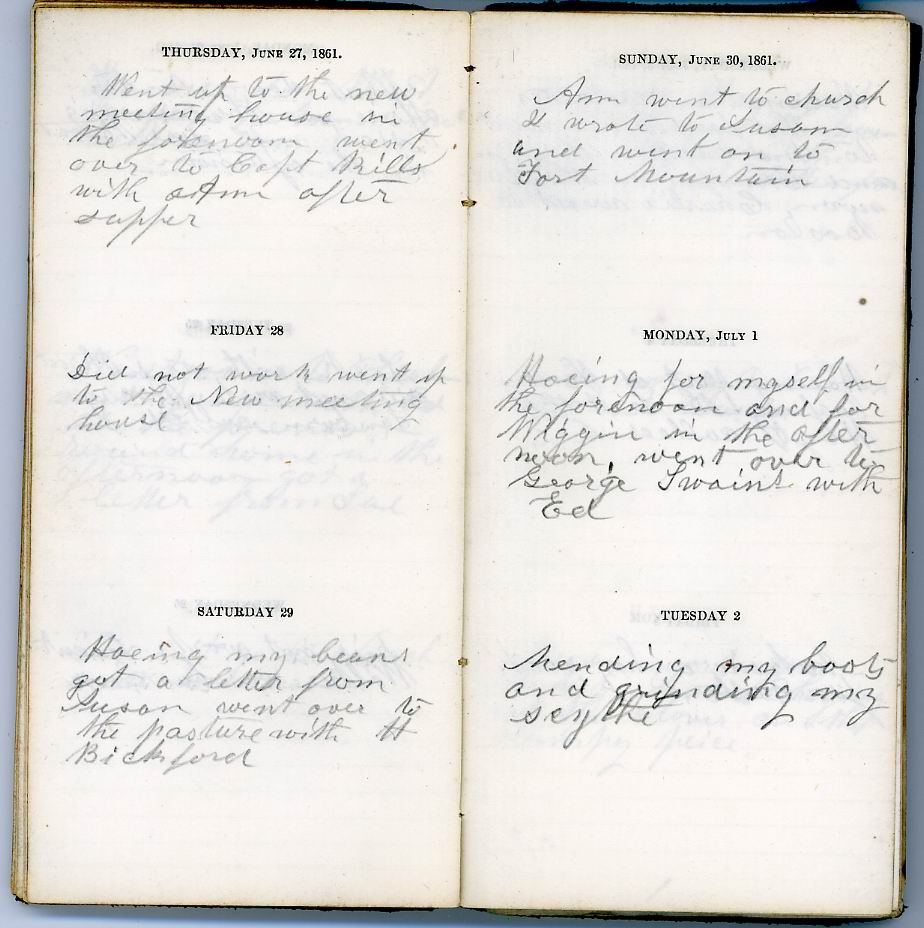 THURSDAY, JUNE 27, 1861.
Went up to the new
meeting house in
the forenoon went
over to Capt Hills
with Ann after
supper
FRIDAY 28
Did not work went up
to the New meeting
house
SATURDAY 29
Hoeing my beans
got a letter from
Susan went over to
the pasture with H
Bickford
SUNDAY, JUNE 30, 1861.
Ann went to church
I wrote to Susan
and went on to
Fort Mountain
MONDAY, JULY 1
Hoeing for myself in
the forenoon and for
Wiggin in the after
noon, went over to
George Swains with
Ed
TUESDAY 2
Mending my boots
and grinding my
scythe